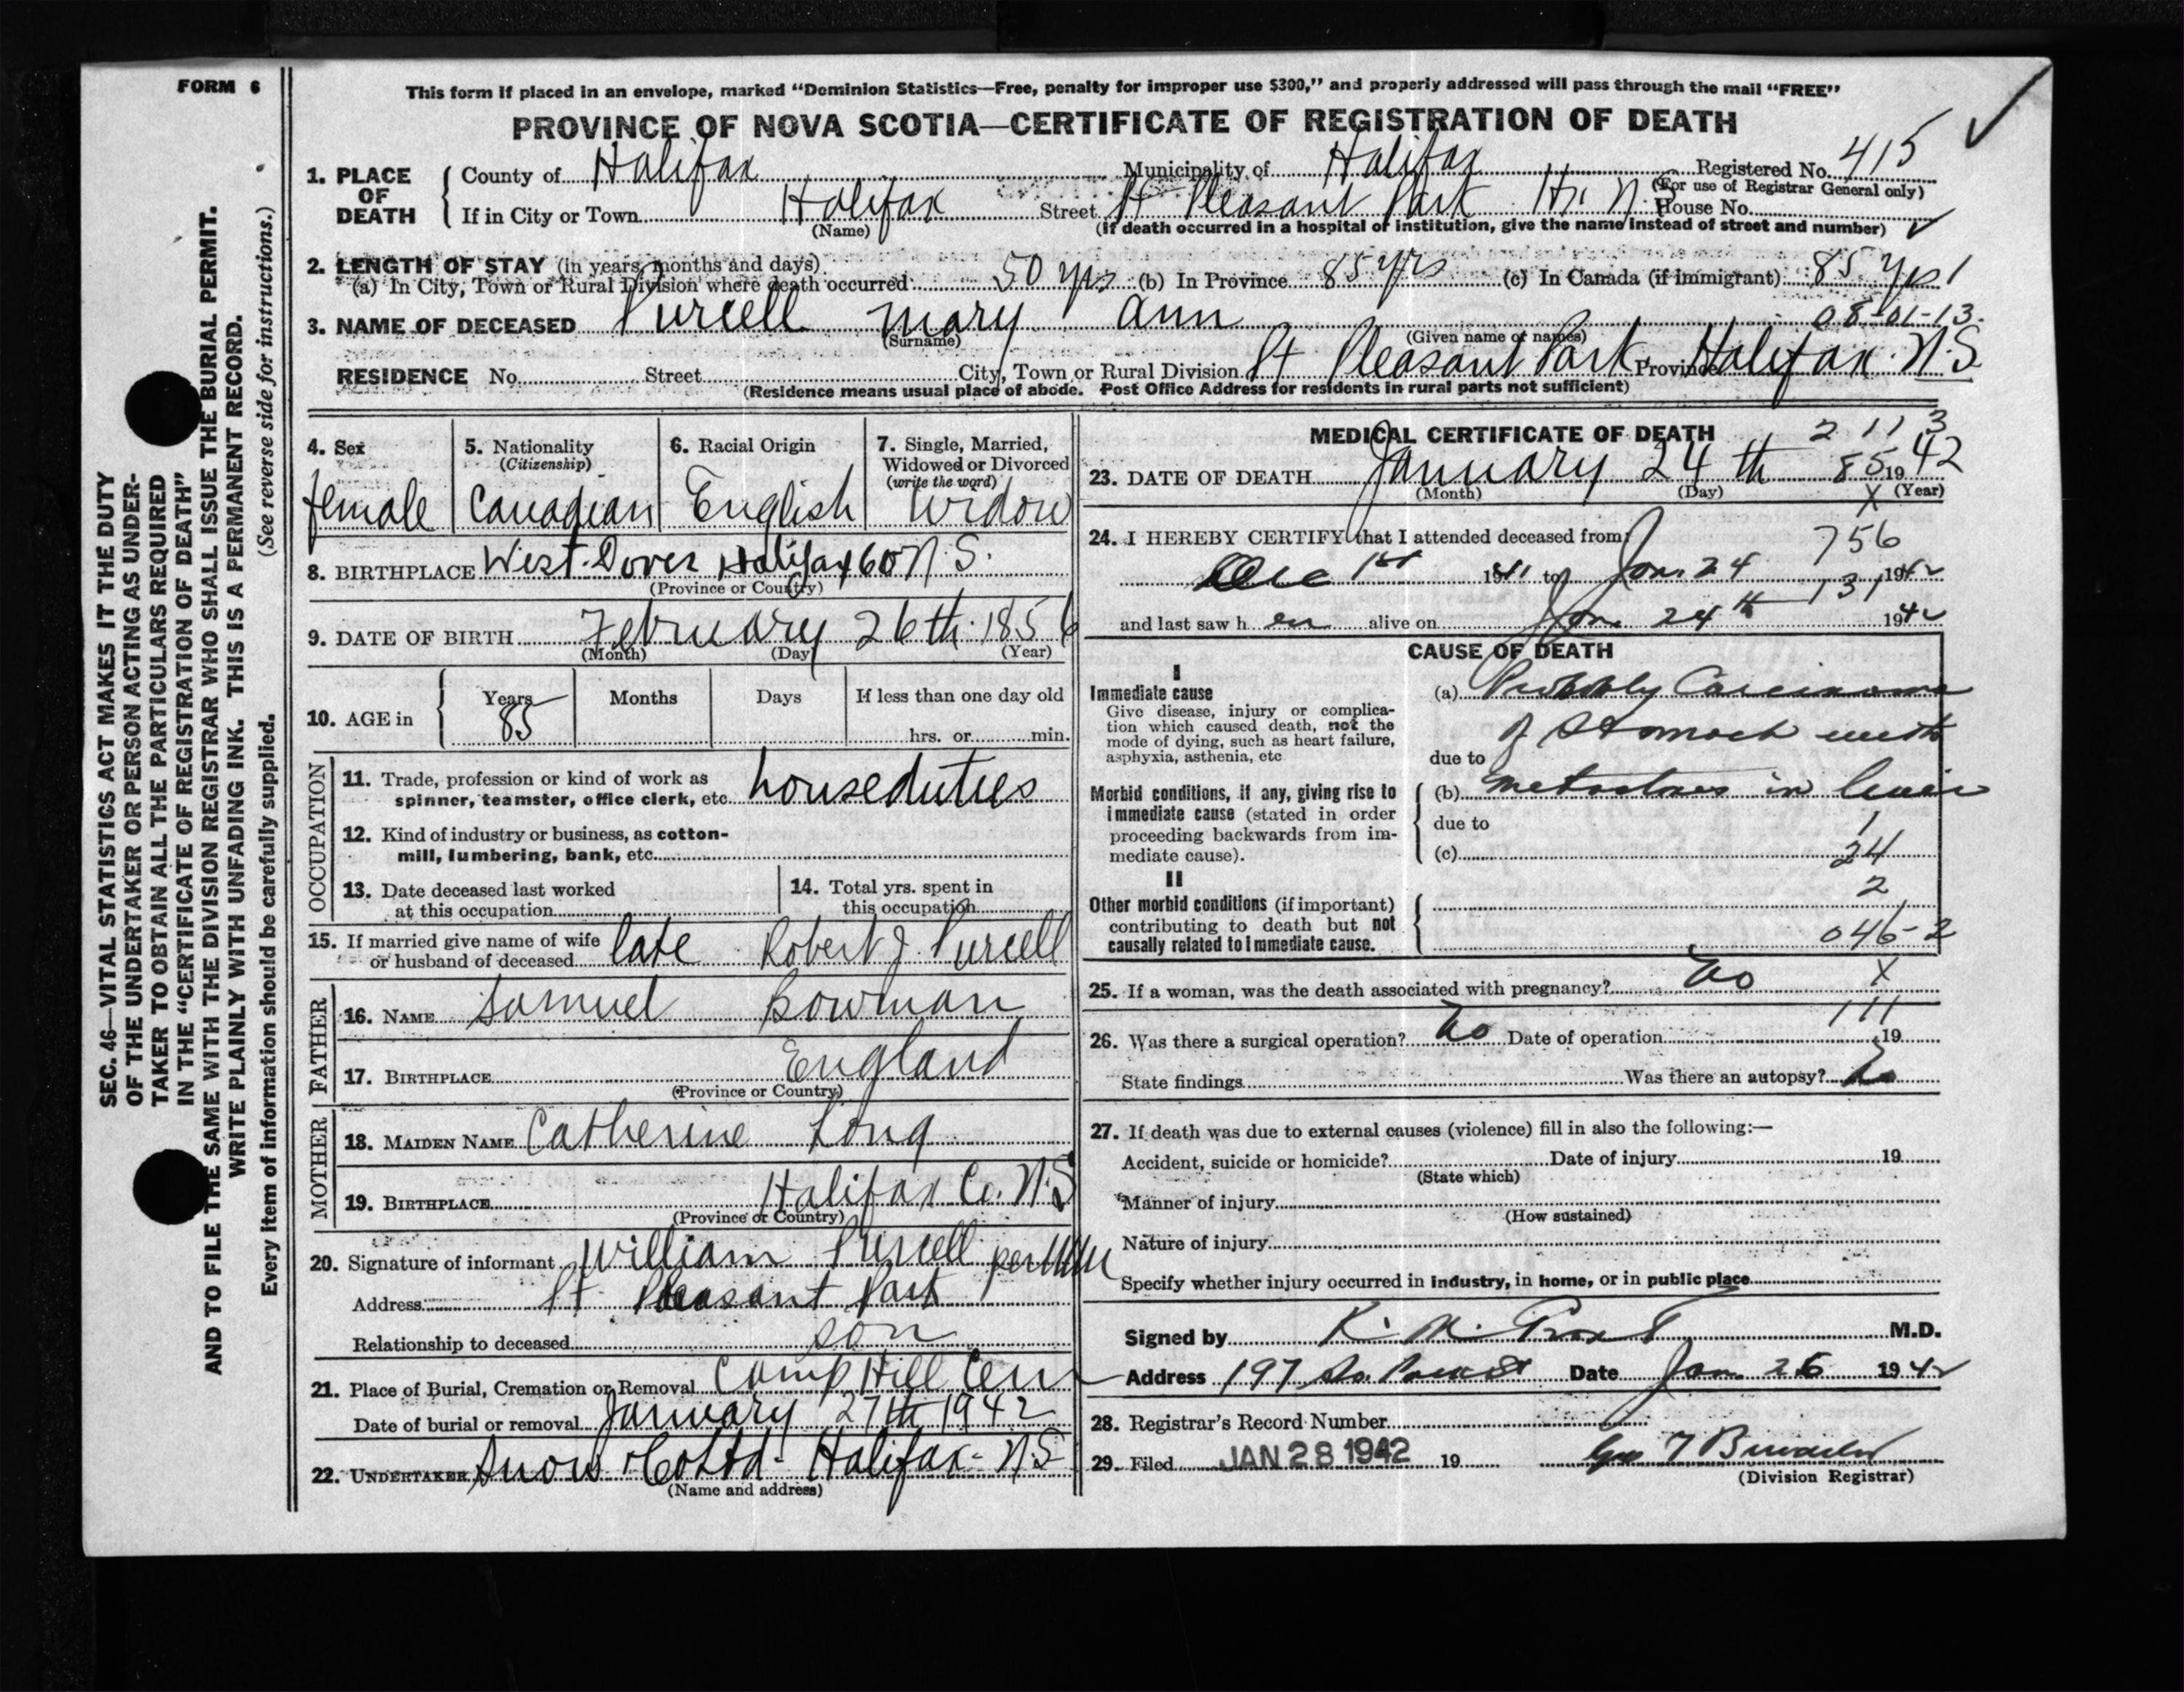 FORM 6
This form if placed in an envelope, marked "Dominion Statistics—Free, penalty for improper use $300," and properly addressed will pass through the mail "FREE"
PROVINCE OF NOVA SCOTIA—CERTIFICATE OF REGISTRATION OF DEATH
1. PLACE OF DEATH
County of Halifax Municipality of Halifax Registered No. 415
(For use of Registrar General only)
If in City or Town Halifax Street Pt Pleasant Park Hx. N.S House No.
(Name) (If death occurred in a hospital or institution, give the name instead of street and number)
2. LENGTH OF STAY (in years, months and days)
(a) In City, Town or Rural Division where death occurred 50 yrs (b) In Province 85 yrs (c) In Canada (if immigrant) 85 yrs
3. NAME OF DECEASED Purcell Mary Ann 08-01-13
(Surname) (Given name or names)
RESIDENCE No. Street City, Town or Rural Division Pt Pleasant Park Province Halifax. N.S
(Residence means usual place of abode. Post Office Address for residents in rural parts not sufficient)
4. Sex
female
5. Nationality
(Citizenship)
Canadian
6. Racial Origin
English
7. Single, Married,
Widowed or Divorced
(write the word)
Widow
8. BIRTHPLACE West Dover Halifax Co N.S.
(Province or Country)
9. DATE OF BIRTH February 26th 1856
(Month) (Day) (Year)
10. AGE in
Years Months Days If less than one day old
85 hrs. or min.
OCCUPATION
11. Trade, profession or kind of work as
spinner, teamster, office clerk, etc. houseduties
12. Kind of industry or business, as cotton-
mill, lumbering, bank, etc.
13. Date deceased last worked
at this occupation
14. Total yrs. spent in
this occupation
15. If married give name of wife
or husband of deceased late Robert J. Purcell
FATHER
16. NAME Samuel Bowman
17. BIRTHPLACE England
(Province or Country)
MOTHER
18. MAIDEN NAME Catherine Long
19. BIRTHPLACE Halifax Co. N.S
(Province or Country)
20. Signature of informant William Purcell per
Address Pt. Pleasant Park
Relationship to deceased son
21. Place of Burial, Cremation or Removal Camp Hill Cem
Date of burial or removal January 27th 1942
22. UNDERTAKER Snow & Co Ltd - Halifax - N.S
(Name and address)
MEDICAL CERTIFICATE OF DEATH 2 11 3
23. DATE OF DEATH January 24th 85 1942
(Month) (Day) X (Year)
24. I HEREBY CERTIFY that I attended deceased from 756
Dec 1st 1941 to Jan 24 1942
131
and last saw her alive on Jan. 24th 1942
CAUSE OF DEATH
I
Immediate cause
Give disease, injury or complica-
tion which caused death, not the
mode of dying, such as heart failure,
asphyxia, asthenia, etc
(a) Probably Carcinoma
of Stomach with
due to
Morbid conditions, if any, giving rise to
immediate cause (stated in order
proceeding backwards from im-
mediate cause).
(b) metastases in liver
due to 1
(c) 24
II
Other morbid conditions (if important)
contributing to death but not
causally related to immediate cause.
2
046-2
25. If a woman, was the death associated with pregnancy? No X
111
26. Was there a surgical operation? No Date of operation 19
State findings Was there an autopsy?
27. If death was due to external causes (violence) fill in also the following:—
Accident, suicide or homicide? Date of injury 19
(State which)
Manner of injury
(How sustained)
Nature of injury
Specify whether injury occurred in industry, in home, or in public place
Signed by K. M. Grant M.D.
Address 197 So. Park St Date Jan. 26 1942
28. Registrar's Record Number
29. Filed JAN 28 1942 19
(Division Registrar)
SEC. 46—VITAL STATISTICS ACT MAKES IT THE DUTY
OF THE UNDERTAKER OR PERSON ACTING AS UNDER-
TAKER TO OBTAIN ALL THE PARTICULARS REQUIRED
IN THE "CERTIFICATE OF REGISTRATION OF DEATH"
AND TO FILE THE SAME WITH THE DIVISION REGISTRAR WHO SHALL ISSUE THE BURIAL PERMIT.
WRITE PLAINLY WITH UNFADING INK. THIS IS A PERMANENT RECORD.
Every item of information should be carefully supplied. (See reverse side for instructions.)